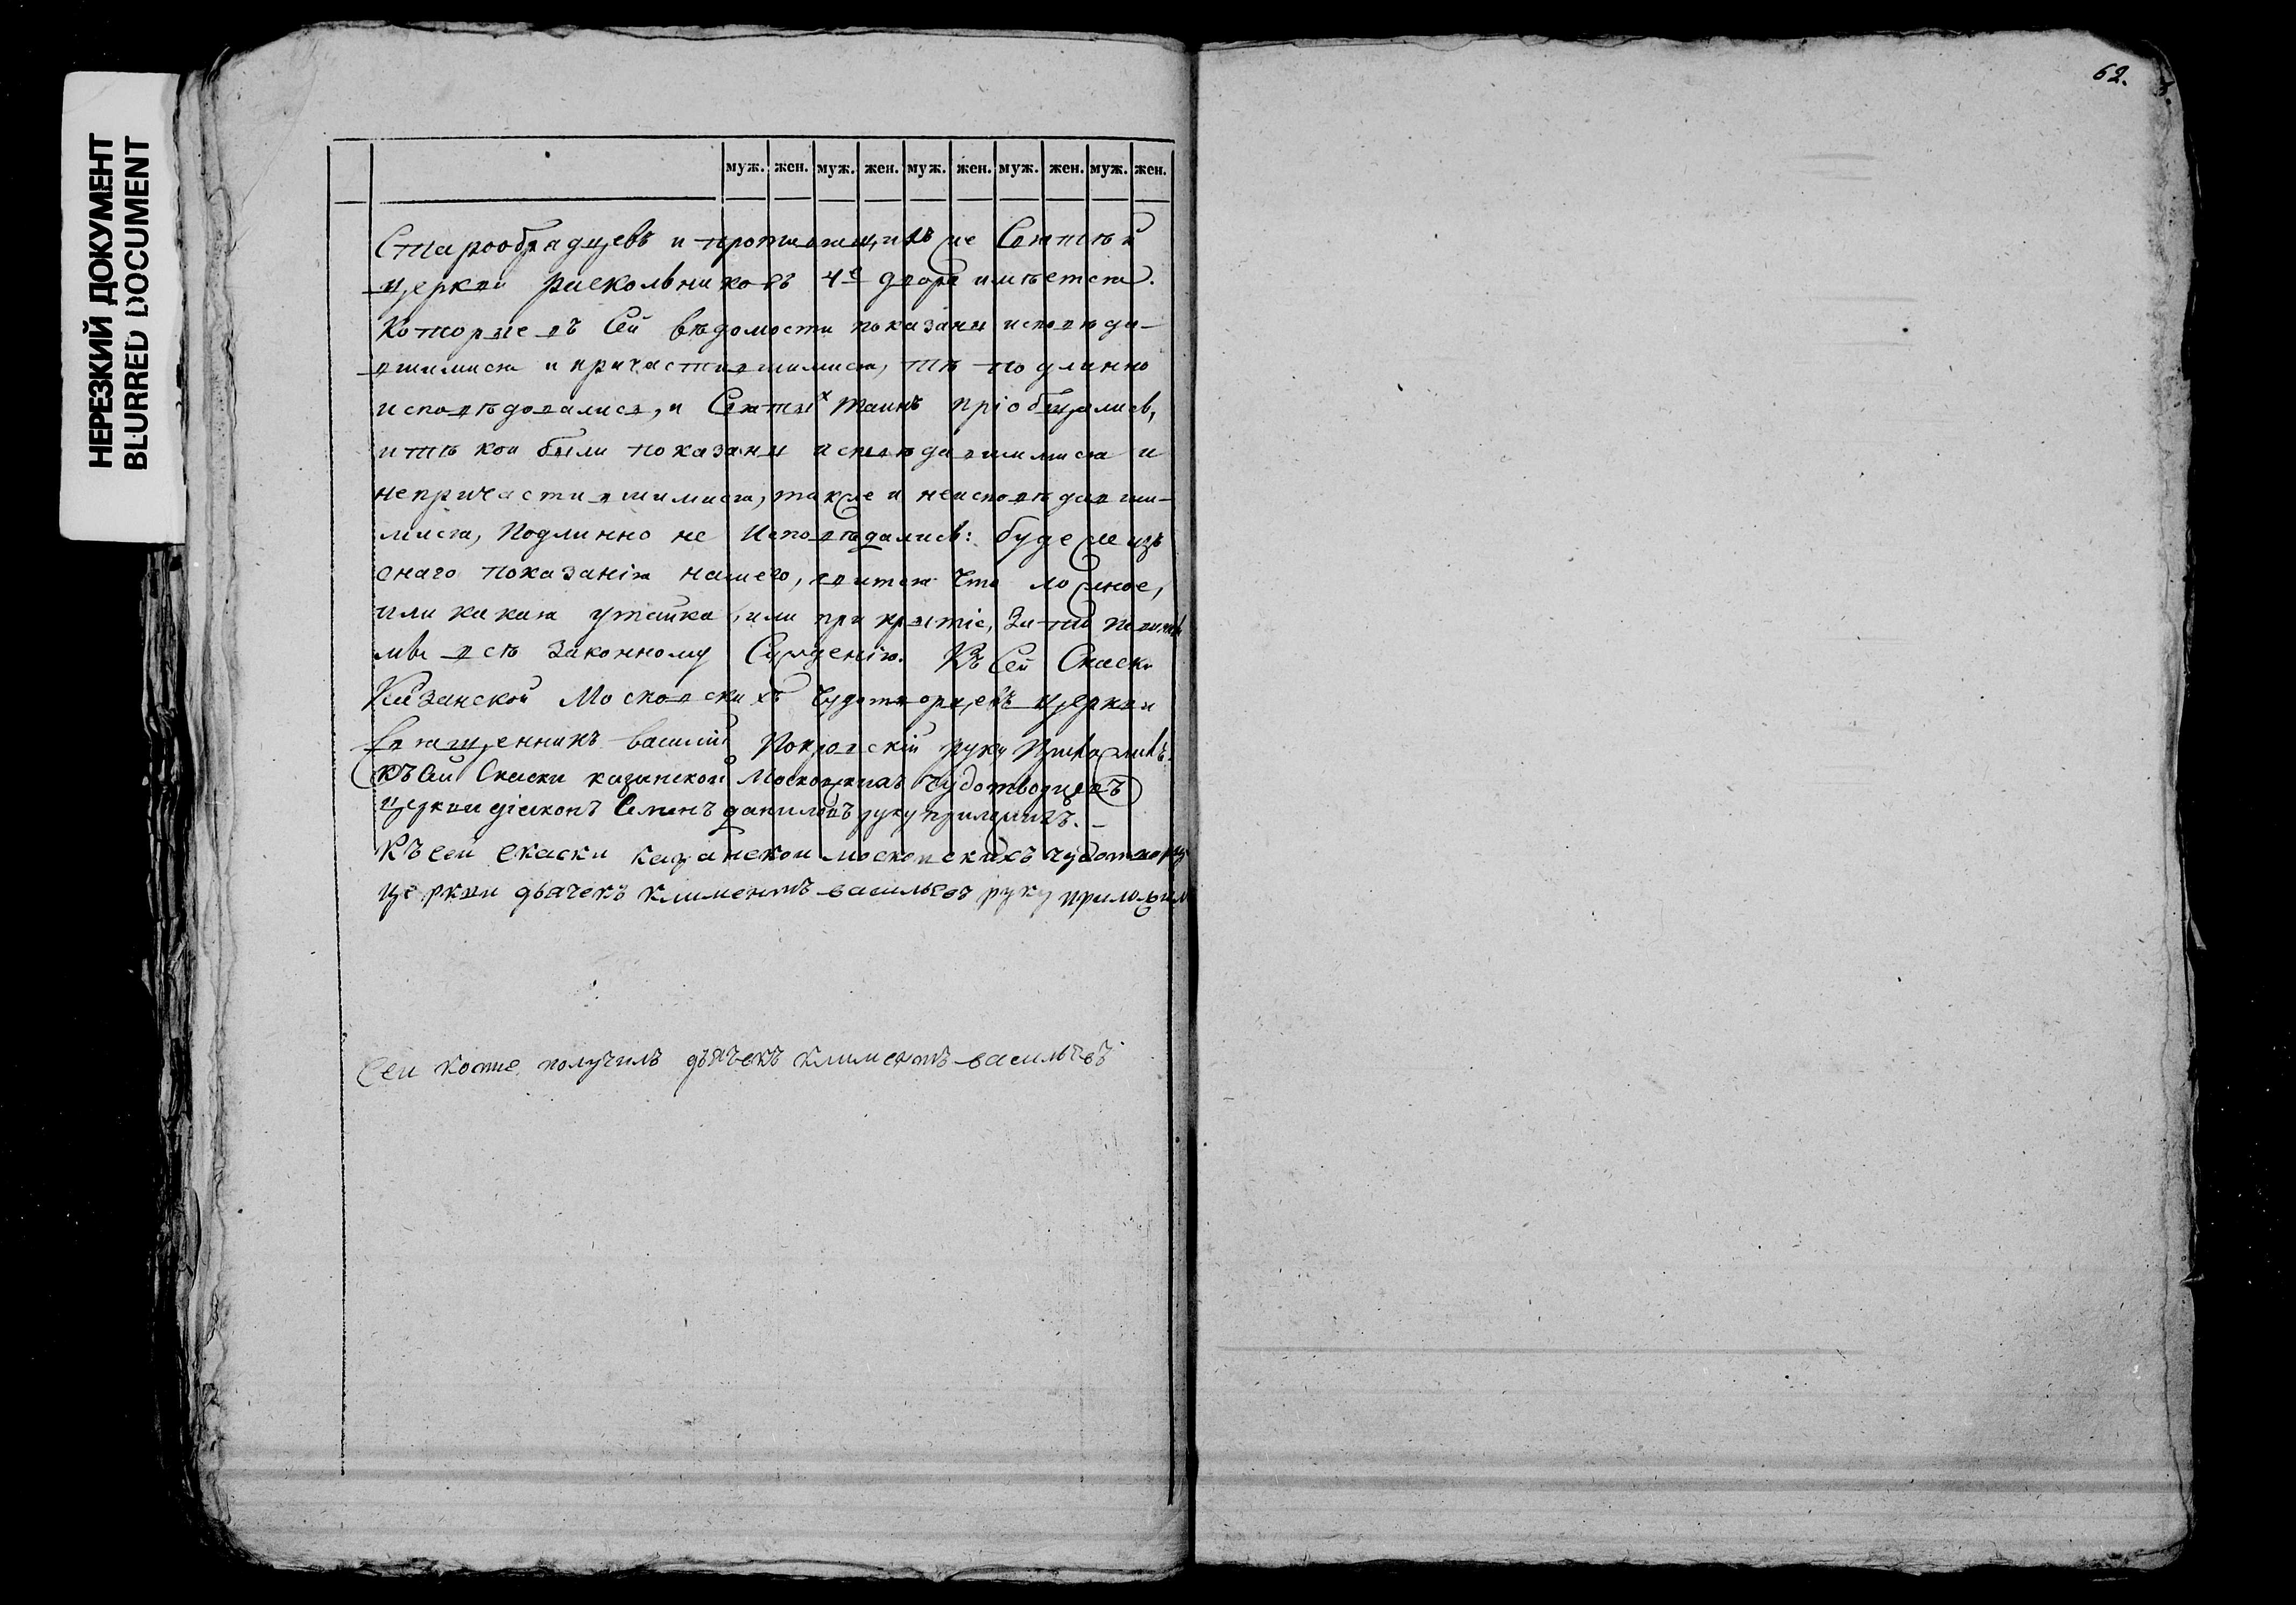 НЕРЕЗКИЙ ДОКУМЕНТ
BLURRED DOCUMENT
62.
муж. жен. муж. жен. муж. жен. муж. жен. муж. жен.
Старообрядцевъ и противящихъ же Святѣй
церкви раскольниковъ 4е двора имѣется.
Которые въ Сей вѣдомости показаны исповѣда-
вшимися и причастившимися, тѣ подлинно
исповѣдовались, и Святыхъ таинъ пріобщились,
и тѣ кои были показаны исповѣдавшимися и
непричастившимися, также и неисповѣдавши-
мися, Подлинно не Исповѣдались: буде же изъ
снаго показанія нашего, явится что ложное,
или какая утайка, или прикрытіе, За то повинны
мы всѣ Законному Сужденію. Къ Сей Скаски
Казанской Московскихъ Чудотворцевъ церкви
Священникъ василий Покровскій руку Приложилъ.
Къ Сей Скаски казанской Московскихъ Чудотворцевъ
церкви діяконъ Семенъ даниловъ руку приложилъ.
Къ сей скаски казанской московскихъ чудотворц
церкви дьячекъ климентъ васильевъ руку приложил
Сей копие получилъ дьячекъ климентъ васильевъ